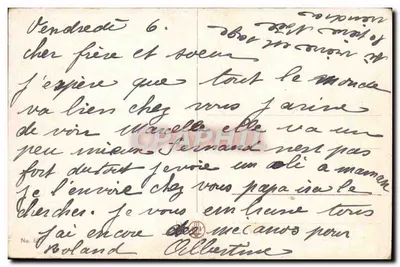 Vendredi 6.
cher frère et soeur
j'espère que tout le monde
va bien chez vous j'arive
de voir Marcelle elle va un
peu mieux Fernand n'est pas
fort du tout j'evoie un coli a maman
je l'envoie chez vous papa ira le
chercher. je vous embrasse tous
j'ai encore des mecanos pour
Roland Albertine
No.